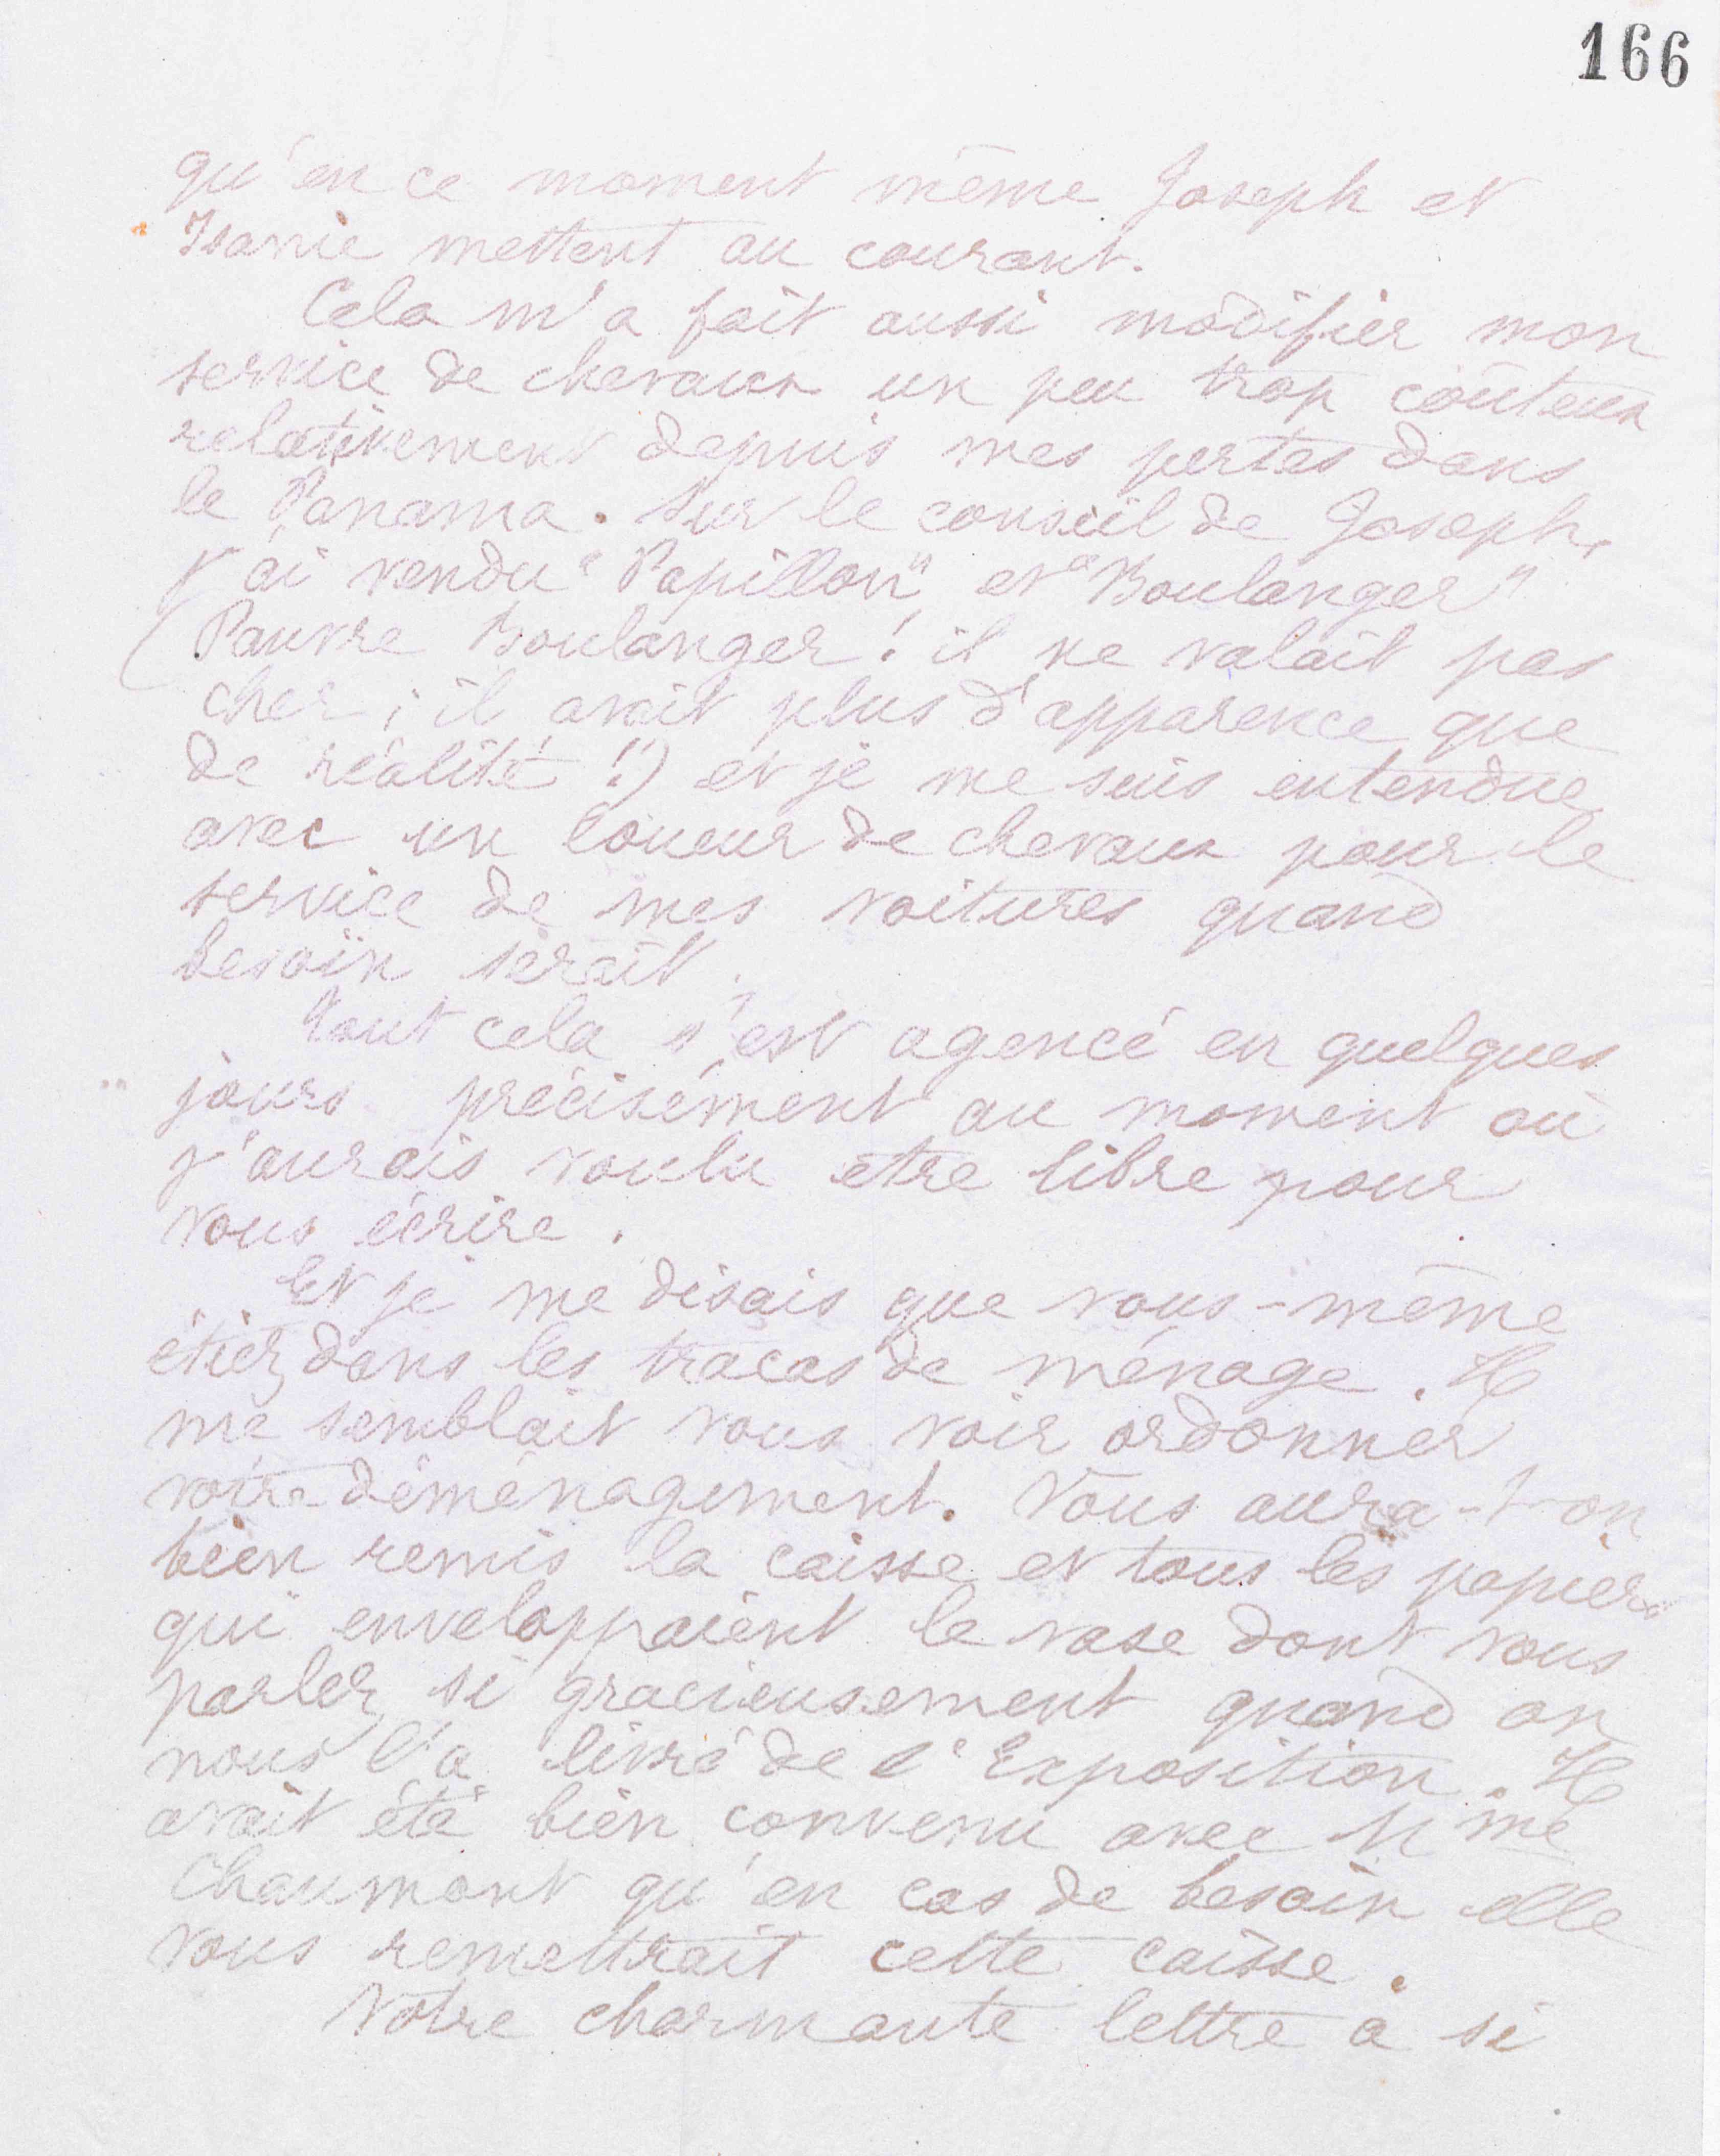 166
qu'en ce moment même Joseph et
Isanie mettent au courant.
Cela m'a fait aussi modifier mon
service de chevaux un peu trop coûteux
relativement depuis mes pertes dans
le Panama. Sur le conseil de Joseph,
j'ai vendu "Papillon" et "Boulanger"
(Pauvre Boulanger! il ne valait pas
cher; il avait plus d'apparence que
de réalité!) et je me suis entendue
avec un loueur de chevaux pour le
service de mes voitures quand
besoin serait.
Tout cela s'est agencé en quelques
jours précisément au moment où
j'aurais voulu être libre pour
vous écrire.
Et je me disais que vous-même
étiez dans les tracas de ménage. Il
me semblait vous voir ordonner
votre déménagement. Vous aura-t-on
bien remis la caisse et tous les papiers
qui enveloppaient le vase dont vous
parlez si gracieusement quand on
nous l'a livré de l'Exposition. Il
avait été bien convenu avec Mme
Chaumont qu'en cas de besoin elle
vous remettrait cette caisse.
Votre charmante lettre a si